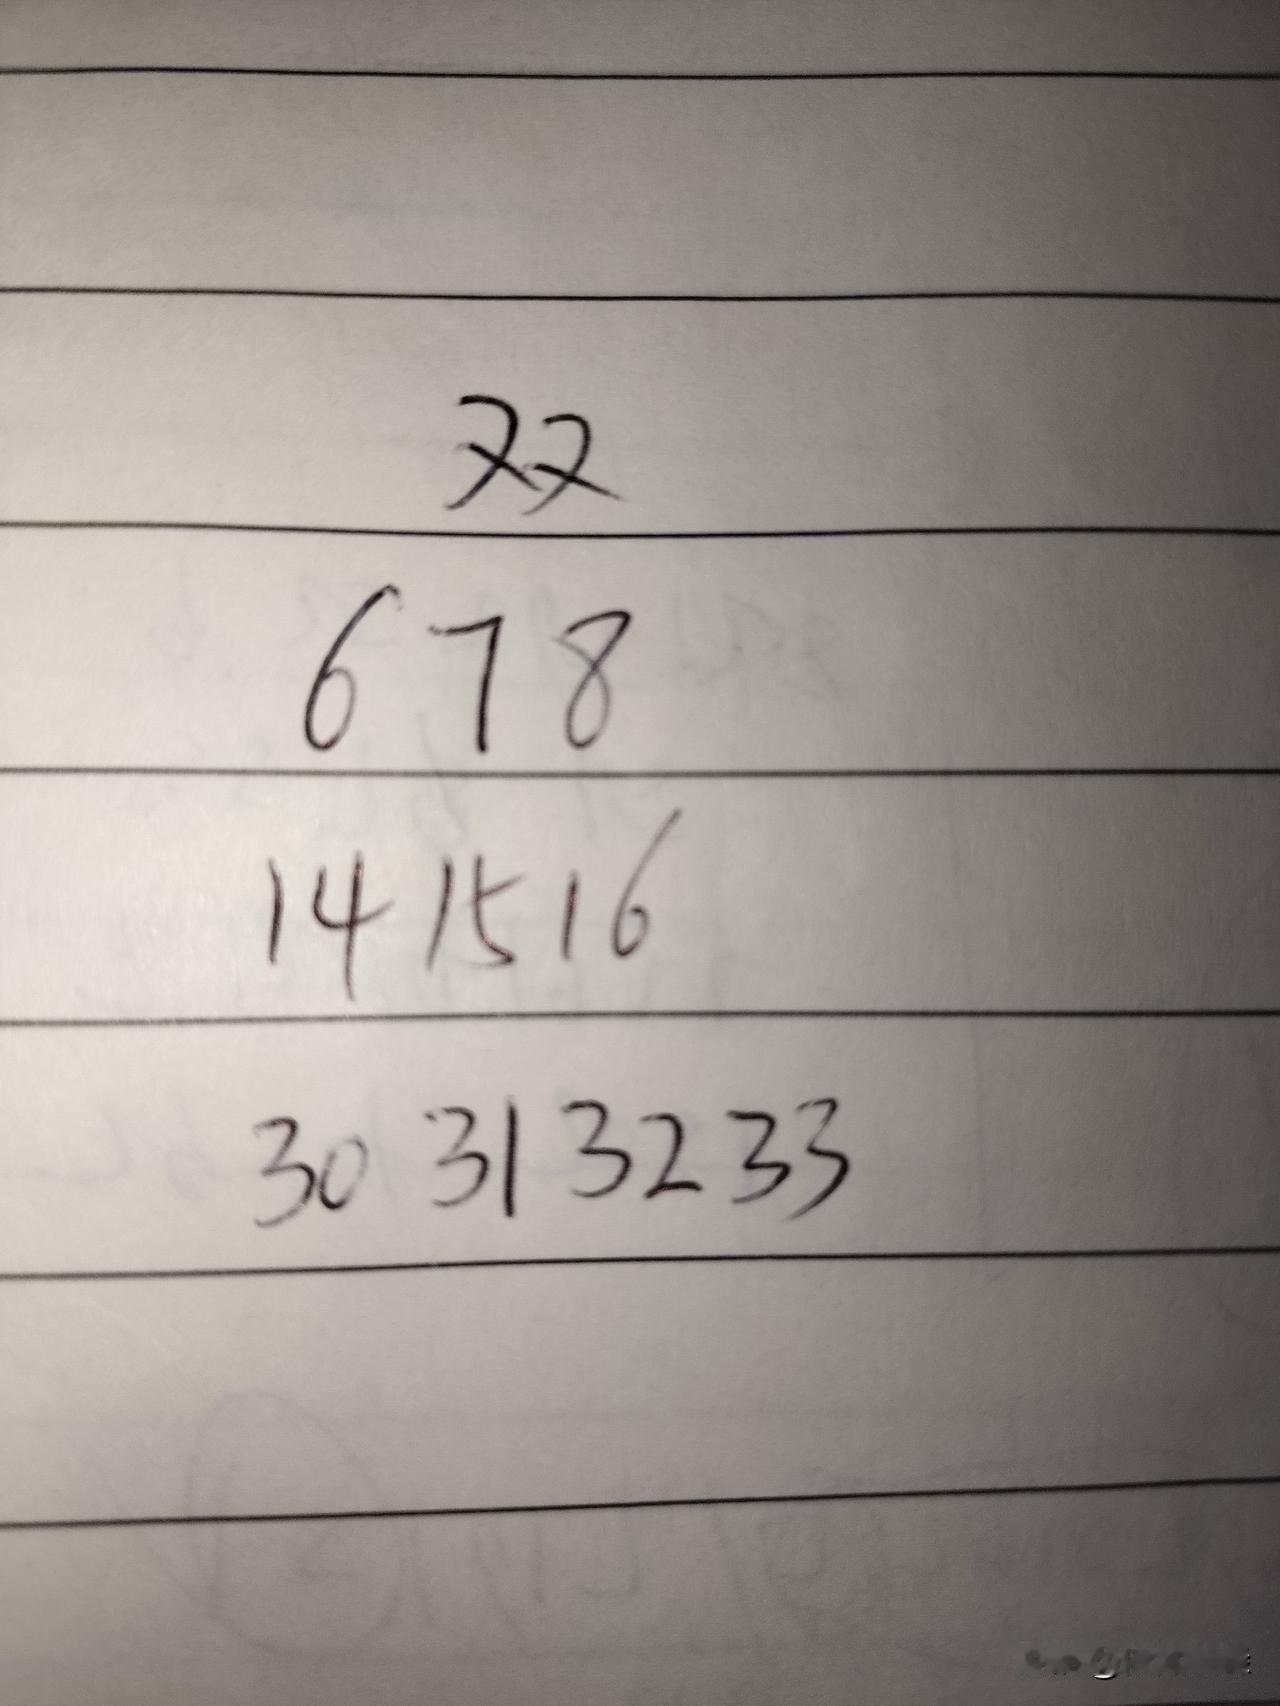 双
6 7 8
14 15 16
30 31 32 33